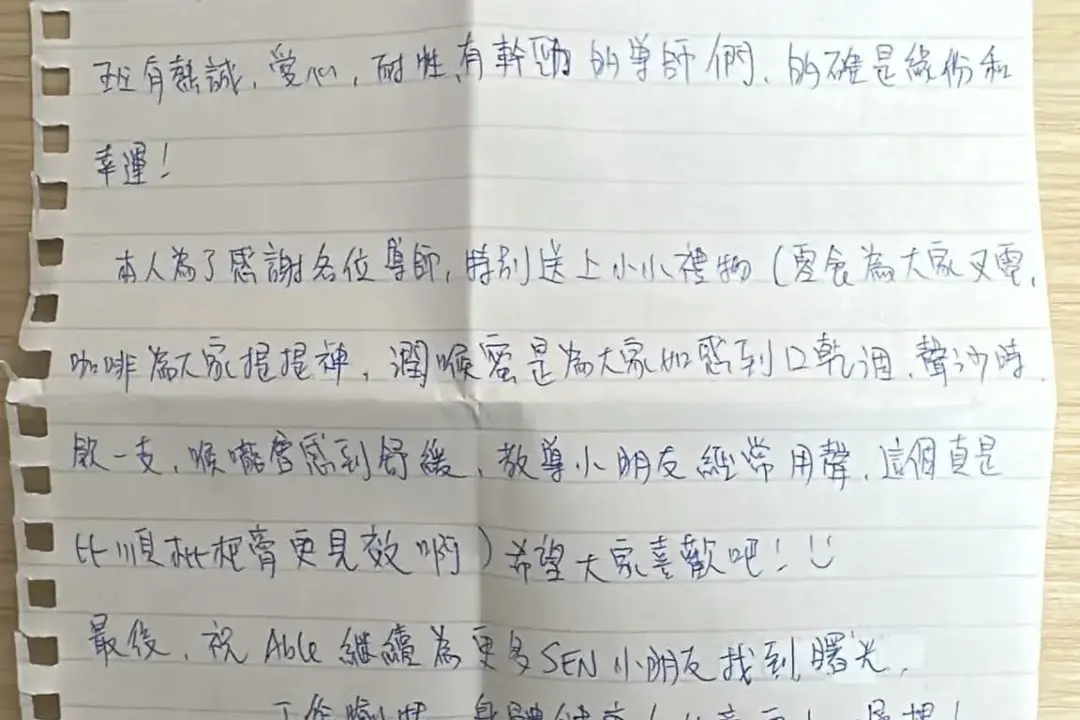 班有熱誠,愛心,耐性,有幹勁的導師們,的確是緣份和
幸運!
本人為了感謝各位導師,特別送上小小禮物(零食為大家叉電,
咖啡為大家提提神,潤喉蜜是為大家如感到口乾涸,聲沙時,
飲一支,喉嚨會感到舒緩,教導小朋友經常用聲,這個真是
比順枇杷膏更見效啊)希望大家喜歡吧!
最後,祝Able繼續為更多SEN小朋友找到曙光,
工作愉快,身體健康